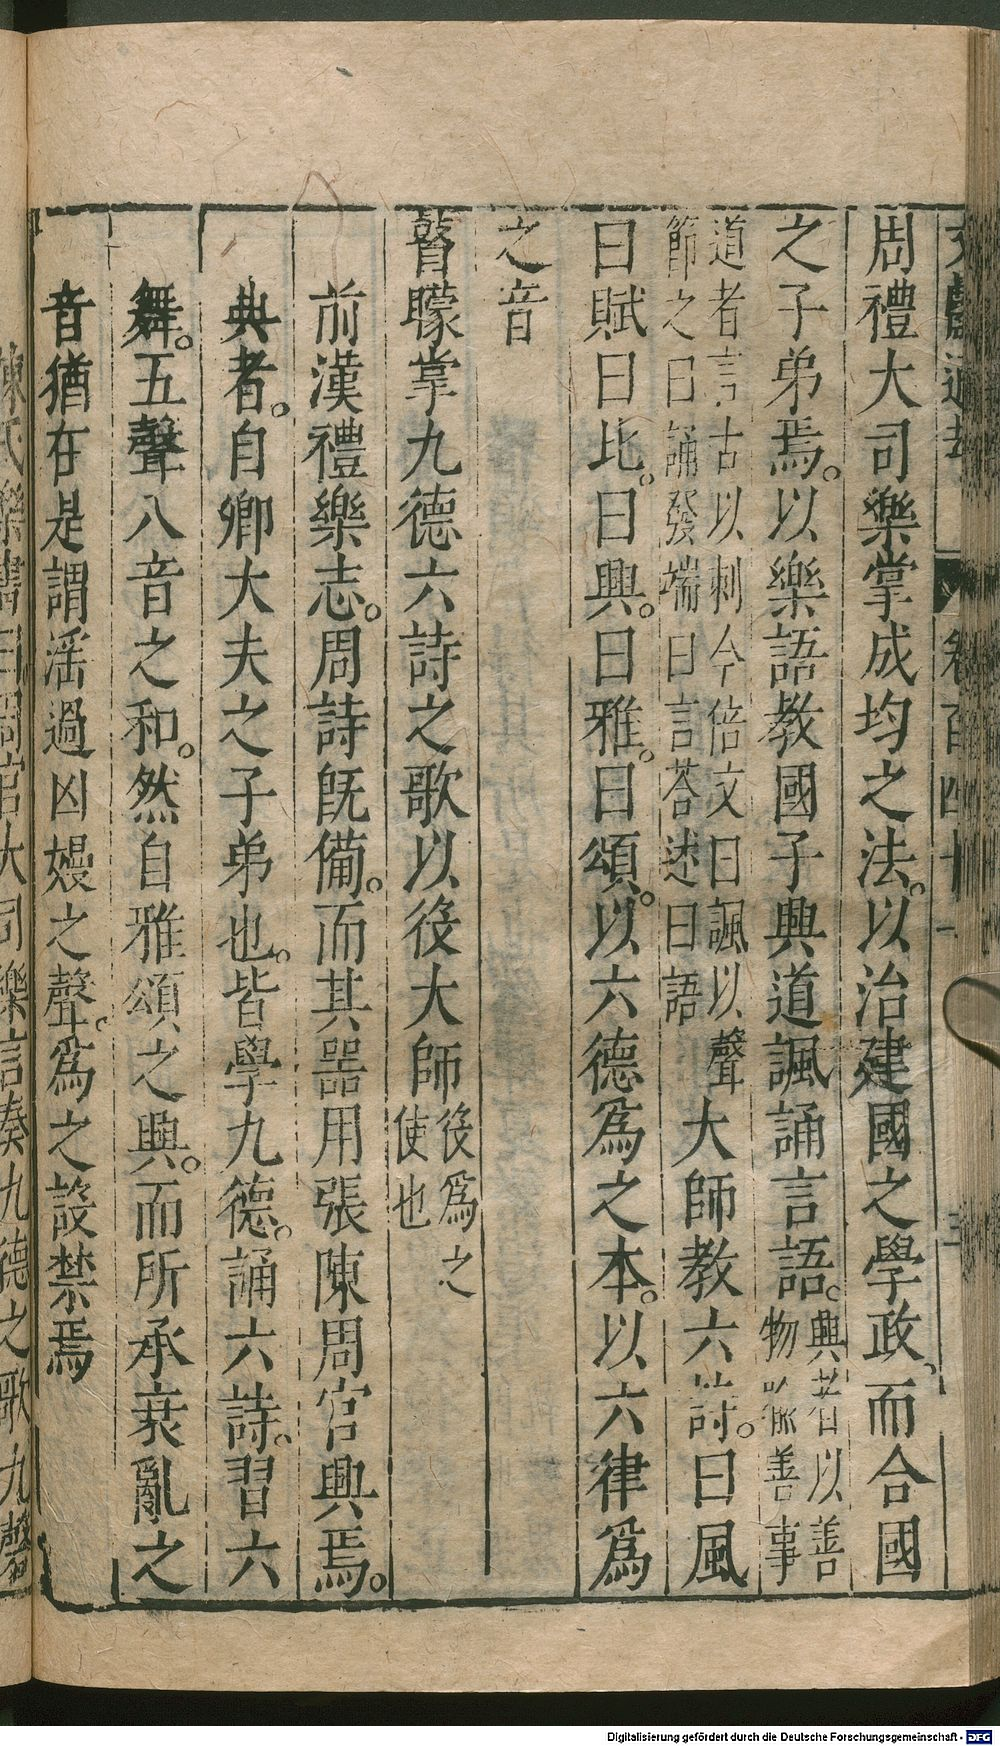 文獻通考 卷百四十一 三
周禮大司樂掌成均之法。以治建國之學政、而合國
之子弟焉。以樂語教國子興道諷誦言語。興者以善物喻善事
道者言古以剴今倍文曰諷以聲節之曰誦發端曰言荅述曰語大師教六詩。曰風
曰賦曰比。曰興。曰雅。曰頌。以六德爲之本。以六律爲
之音
瞽矇掌九德六詩之歌以役大師役爲之使也
前漢禮樂志。周詩旣備。而其噐用張陳周官具焉。
典者。自卿大夫之子弟也。皆學九德。誦六詩。習六
舞。五聲八音之和。然自雅頌之興。而所承衰亂之
音猶在是謂滛過凶嫚之聲。爲之設禁焉
陳氏樂書曰周官大司樂言奏九德之歌九磬
Digitalisierung gefördert durch die Deutsche Forschungsgemeinschaft - DFG